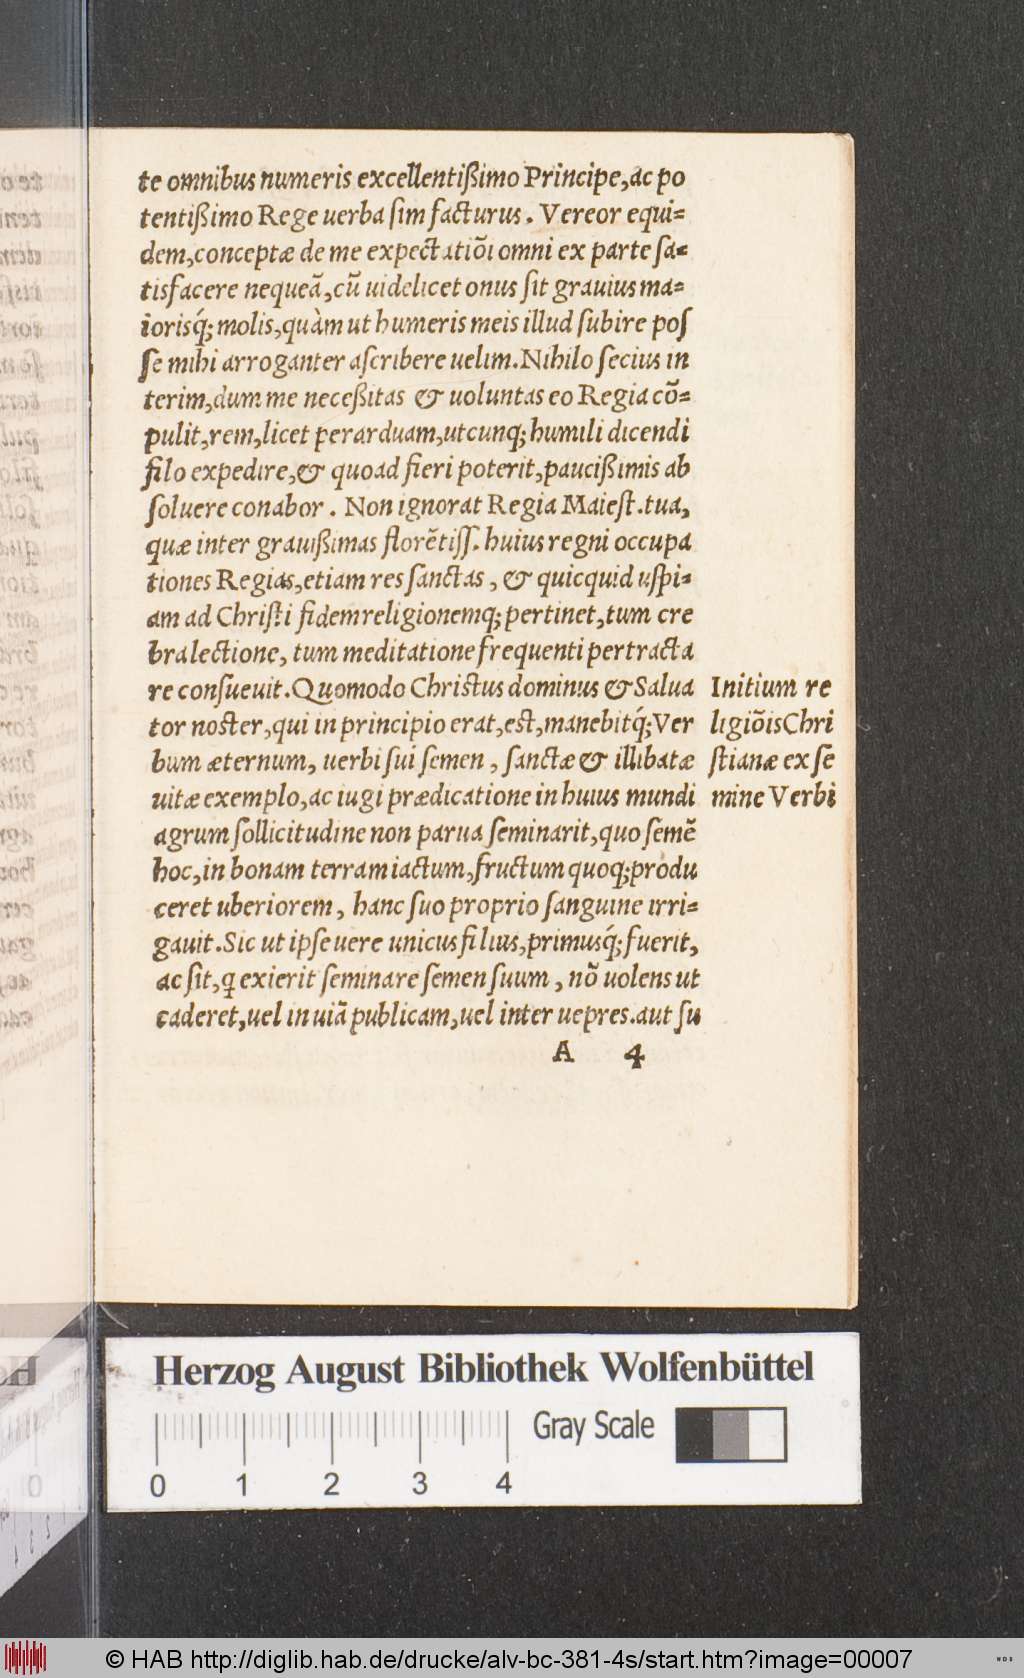 te omnibus numeris excellentißimo Principe, ac po
tentißimo Rege uerba ſim facturus. Vereor equi=
dem, conceptæ de me expectatiõi omni ex parte ſa=
tisfacere nequeã, cũ uidelicet onus ſit grauius ma=
iorisq́; molis, quàm ut humeris meis illud ſubire poſ
ſe mihi arroganter aſcribere uelim. Nihilo ſecius in
terim, dum me neceßitas & uoluntas eo Regia cõ=
pulit, rem, licet perarduam, utcunq; humili dicendi
filo expedire, & quoad fieri poterit, paucißimis ab
ſoluere conabor. Non ignorat Regia Maieſt. tua,
quæ inter grauißimas florẽtiſſ. huius regni occupa
tiones Regias, etiam res ſanctas, & quicquid uſpi=
am ad Chriſti fidem religionemq; pertinet, tum cre
bra lectione, tum meditatione frequenti pertracta
re conſueuit. Quomodo Christus dominus & Salua
tor noster, qui in principio erat, est, manebitq́; Ver
bum æternum, uerbi ſui ſemen, ſanctæ & illibatæ
uitæ exemplo, ac iugi prædicatione in huius mundi
agrum ſollicitudine non parua ſeminarit, quo ſemẽ
hoc, in bonam terram iactum, fructum quoq; produ
ceret uberiorem, hanc ſuo proprio ſanguine irri=
gauit. Sic ut ipſe uere unicus filius, primusq́; fuerit,
ac ſit, ꝗ exierit ſeminare ſemen ſuum, nõ uolens ut
caderet, uel in uiã publicam, uel inter uepres. aut ſu
A 4
Initium re
ligiõis Chri
ſtianæ ex ſe
mine Verbi
Herzog August Bibliothek Wolfenbüttel
Gray Scale
0 1 2 3 4
© HAB http://diglib.hab.de/drucke/alv-bc-381-4s/start.htm?image=00007